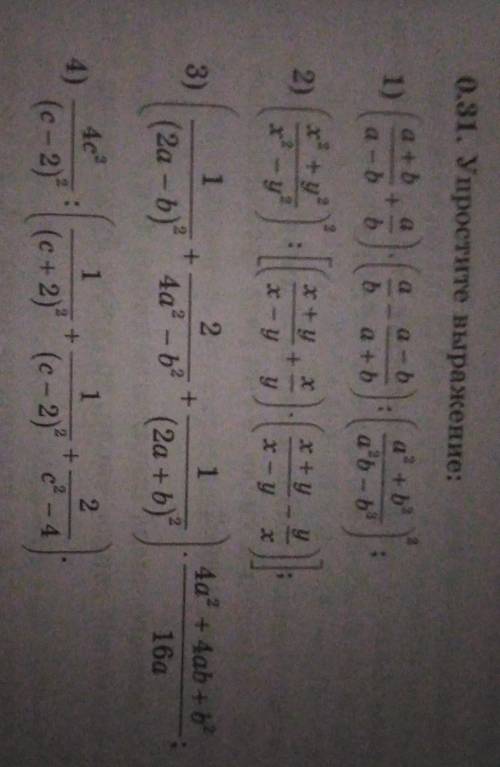 0.31. Упростите выражение:
1) ((a + b)/(a − b) + a/b) · (a/b − (a − b)/(a + b)) : ((a² + b²)/(a²b − b³))²;
2) ((x² + y²)/(x² − y²))² : [((x + y)/(x − y) + x/y) · ((x + y)/(x − y) − y/x)];
3) (1/(2a − b)² + 2/(4a² − b²) + 1/(2a + b)²) · (4a² + 4ab + b²)/(16a);
4) 4c²/(c − 2)² : (1/(c + 2)² + 1/(c − 2)² + 2/(c² − 4)).